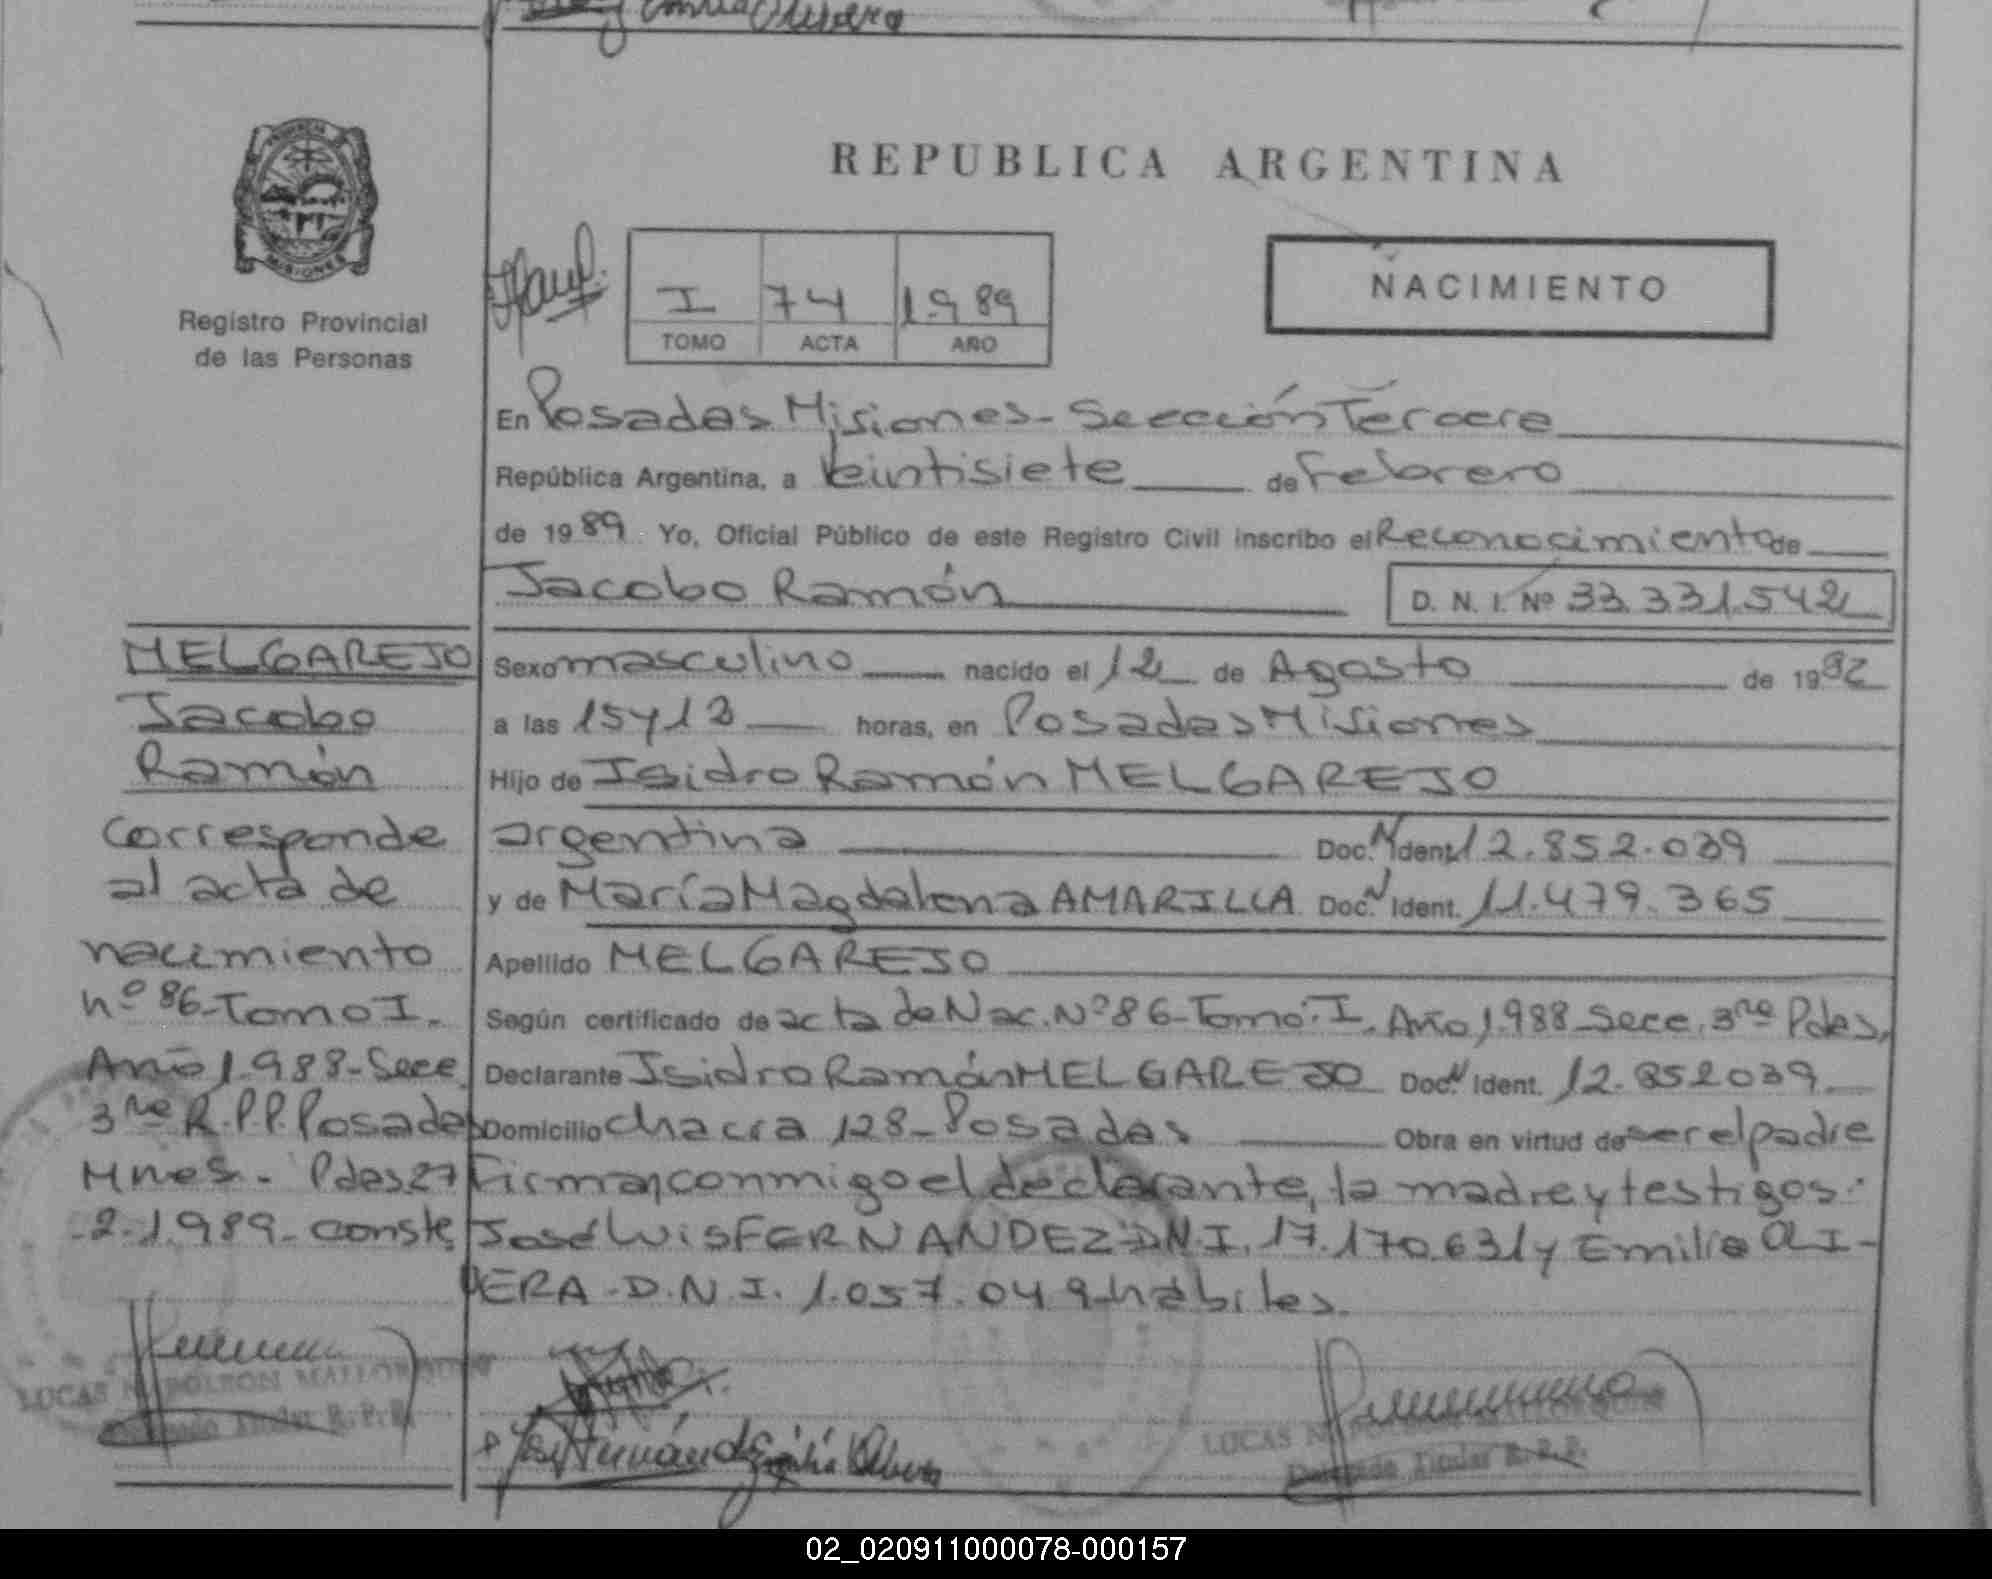 PROVINCIA
MISIONES
Registro Provincial
de las Personas
REPUBLICA ARGENTINA
I 74 1.989
TOMO ACTA AÑO
NACIMIENTO
En Posadas Misiones- Sección Tercera
República Argentina, a Veintisiete de Febrero
de 1989 Yo, Oficial Público de este Registro Civil inscribo el Reconocimiento de
Jacobo Ramón D. N. I. Nº 33.331.542
Sexo masculino nacido el 12 de Agosto de 19
a las 15 y 13 horas, en Posadas Misiones
Hijo de Isidro Ramón MELGAREJO
argentina Doc. N Ident. 12.852.039
y de María Magdalena AMARILLA Doc. N Ident. 11.479.365
Apellido MELGAREJO
Según certificado de acta de Nac. Nº 86-Tomo: I. Año 1.988 Secc. 3ra Pdas,
Declarante Isidro Ramón MELGAREJO Doc. N Ident. 12.852039
Domicilio chacra 128- Posadas Obra en virtud de ser el padre
Firman conmigo el declarante, la madre y testigos:
José Luis FERNANDEZ D.N.I. 17.170.631 y Emilia OLI-
VERA-D.N.I. 1.057.049-hábiles.
MELGAREJO
Jacobo
Ramón
Corresponde
al acta de
nacimiento
nº 86-Tomo I.
Año 1.988-Secc.
3ra R.P.P. Posadas
Mnes.- Pdas 27
-2-1.989- conste
LUCAS NAPOLEON MALLORQUIN
Delegado Titular R.P.P.
José Fernández Emilia Olivera
LUCAS NAPOLEON MALLORQUIN
Delegado Titular R.P.P.
02_020911000078-000157